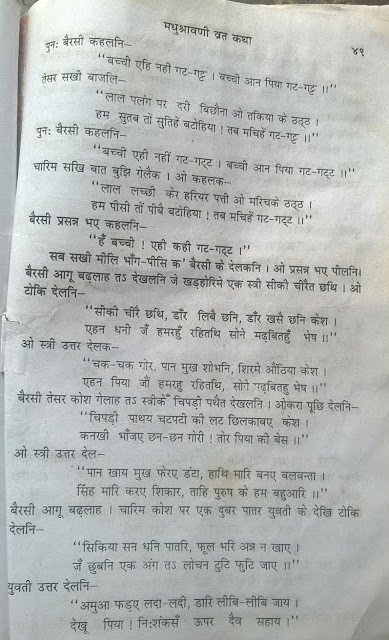 मधुश्रावणी व्रत कथा
४९
पुनः बैरसी कहलनि–
‘‘बच्ची एहि नहीं गट-गट्ट । बच्ची आन पिया गट-गट्ट ।।’’
तेसर सखी बाजलि–
‘‘लाल पलंग पर दरी बिछौना ओ तकिया के ठट्ठ ।
हम सुतब तों सुतिहें बटोहिया ! तब मचिहें गट-गट्ट ।।’’
पुनः बैरसी कहलनि–
‘‘बच्ची एही नहीं गट-गट्ट । बच्ची आन पिया गट-गट्ट ।।’’
चारिम सखि बात बुझि गेलैक । ओ कहलक–
‘‘लाल लच्छी केर हरियर पत्ती ओ मरिचके ठट्ठ ।
हम पीसी तों पीबै बटोहिया ! तब मचिहें गट-गट्ट ।।’’
बैरसी प्रसन्न भए कहलनि–
‘‘हँ बच्ची ! एही कही गट-गट्ट ।’’
सब सखी मीलि भाँग-पीसि क’ बैरसी के देलकनि । ओ प्रसन्न भए पीलनि।
बैरसी आगू बढ़लाह तऽ देखलनि जे खड़होरिमे एक स्त्री सीकी चीरैत छथि । ओ
टोकि देलनि–
‘‘सीकी चीरै छथि, डाँर लिबै छनि, डाँर खसै छनि केश ।
एहन धनी जँ हमरहुँ रहितथि सोने मढ़बितहुँ भेष ।।’’
ओ स्त्री उत्तर देलक–
‘‘चक-चक गोर, पान मुख शोभनि, शिरमे औंठिया केश ।
एहन पिया जौं हमरहु रहितथि, सोने मढ़बितहु भेष ।।’’
बैरसी तेसर कोश गेलाह तऽ स्त्रीकेँ चिपड़ी पथैत देखलनि । ओकरा पूछि देलनि–
‘‘चिपड़ी पाथय चटपटी की लट छिलकाबए केश ।
कनखी भाँजए छन-छन गोरी ! तोर पिया की बेस ।।’’
ओ स्त्री उत्तर देल–
‘‘पान खाय मुख फेरए डंटा, हाथि मारि बनए बलवन्ता ।
सिंह मारि करए शिकार, ताहि पुरुष के हम बहुआरि ।।’’
बैरसी आगू बढ़लाह । चारिम कोश पर एक दुबर पातर युवती के देखि टोकि
देलनि–
‘‘सिकिया सन धनि पातरि, फूल भरि अन्न न खाए ।
जँ छुबनि एक अंग तऽ लोचन टुटि फुटि जाए ।।’’
युवती उत्तर देलनि–
‘‘अमुआ फड़ए लदा-लदी, डारि लीबि-लीबि जाय ।
देखू पिया ! निःशंकसँ ऊपर दैव सहाय ।’’